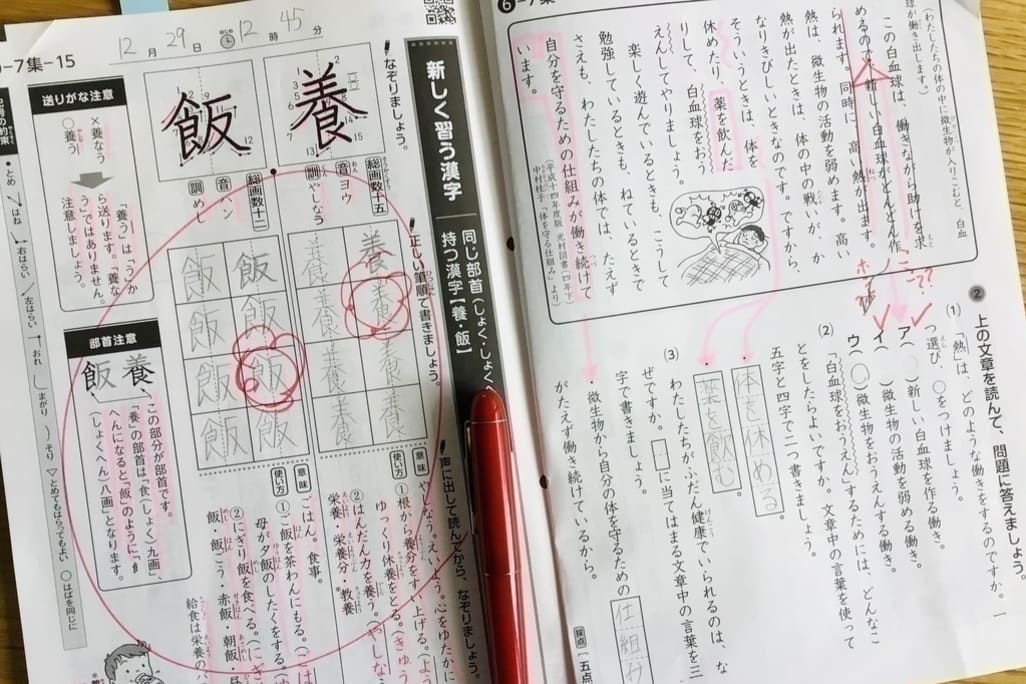 6-7集
(わたしたちの体の中に微生物が入りこむと、白血
球が働き出します。)
この白血球は、働きながら助けを求
めるので、新しい白血球がどんどん作
られます。同時に、高い熱が出ます。
熱は、微生物の活動を弱めます。高い
熱が出たときは、体の中の戦いが、か
なりきびしいときなのです。ですから、
そういうときは、体を
休めたり、薬を飲んだ
りして、白血球をおう
えんしてやりましょう。
楽しく遊んでいるときも、ねているときで
勉強しているときも、こうして
さえも、わたしたちの体では、たえず
自分を守るための仕組みが働き続けて
います。
(平成十四年度版 光村図書「四年下」
中村桂子「体を守る仕組み」より)
2 上の文章を読んで、問題に答えましょう。
(1) 「熱」は、どのような働きをするのですか。一
つ選び、○をつけましょう。
ア( )新しい白血球を作る働き。
イ( )微生物の活動を弱める働き。
ウ(○)微生物をおうえんする働き。
(2) 「白血球をおうえん」するためには、どんなこ
とをしたらよいですか。文章中の言葉を使って
五字と四字で二つ書きましょう。
・体を休める
・薬を飲む
(3) わたしたちがふだん健康でいられるのは、な
ぜですか。□に当てはまる文章中の言葉を三
字で書きましょう。
・微生物から自分の体を守るための 仕組み
がたえず働き続けているから。
採点
五点
新しく習う漢字
同じ部首(しょく・しょくへ
持つ漢字【養・飯】
12月29日 はじめ 12時45分
-7集-15
なぞりましょう。
養
総画数十五
音 ヨウ
訓 やしなう
飯
総画数十二
音 ハン
訓 めし
正しい筆順で書きましょう。
養 養 養 養
養 養 養 養
飯 飯 飯 飯
飯 飯 飯 飯
声に出して読んでから、なぞりましょう。
意味
使い方
①根から養分をすい上げる。(よう
ゆっくり休養をとる。(きゅう
②はんだん力を養う。(やしな
栄養・栄養分・教養
意味
ごはん。食事。
使い方
①ご飯を茶わんにもる。(
母が夕飯のしたくをする。
②にぎり飯を食べる。(にぎ
飯・飯ごう・赤飯・朝飯・昼
給食は栄養のバ
送りがな注意
×養なう
○養う
「養う」は「う」か
ら送ります。「養な
う」ではありません。
注意しましょう。
部首注意
養 飯
この部分が部首です。
「養」の部首は「食(しょく)」九画、
へんになると「飯」のように「飠
(しょくへん)」八画」となります。
・とめ
はね
右はらい
左はらい
おれ
まがり
そり
▽とめてもはらってもよい
○はばを同じに